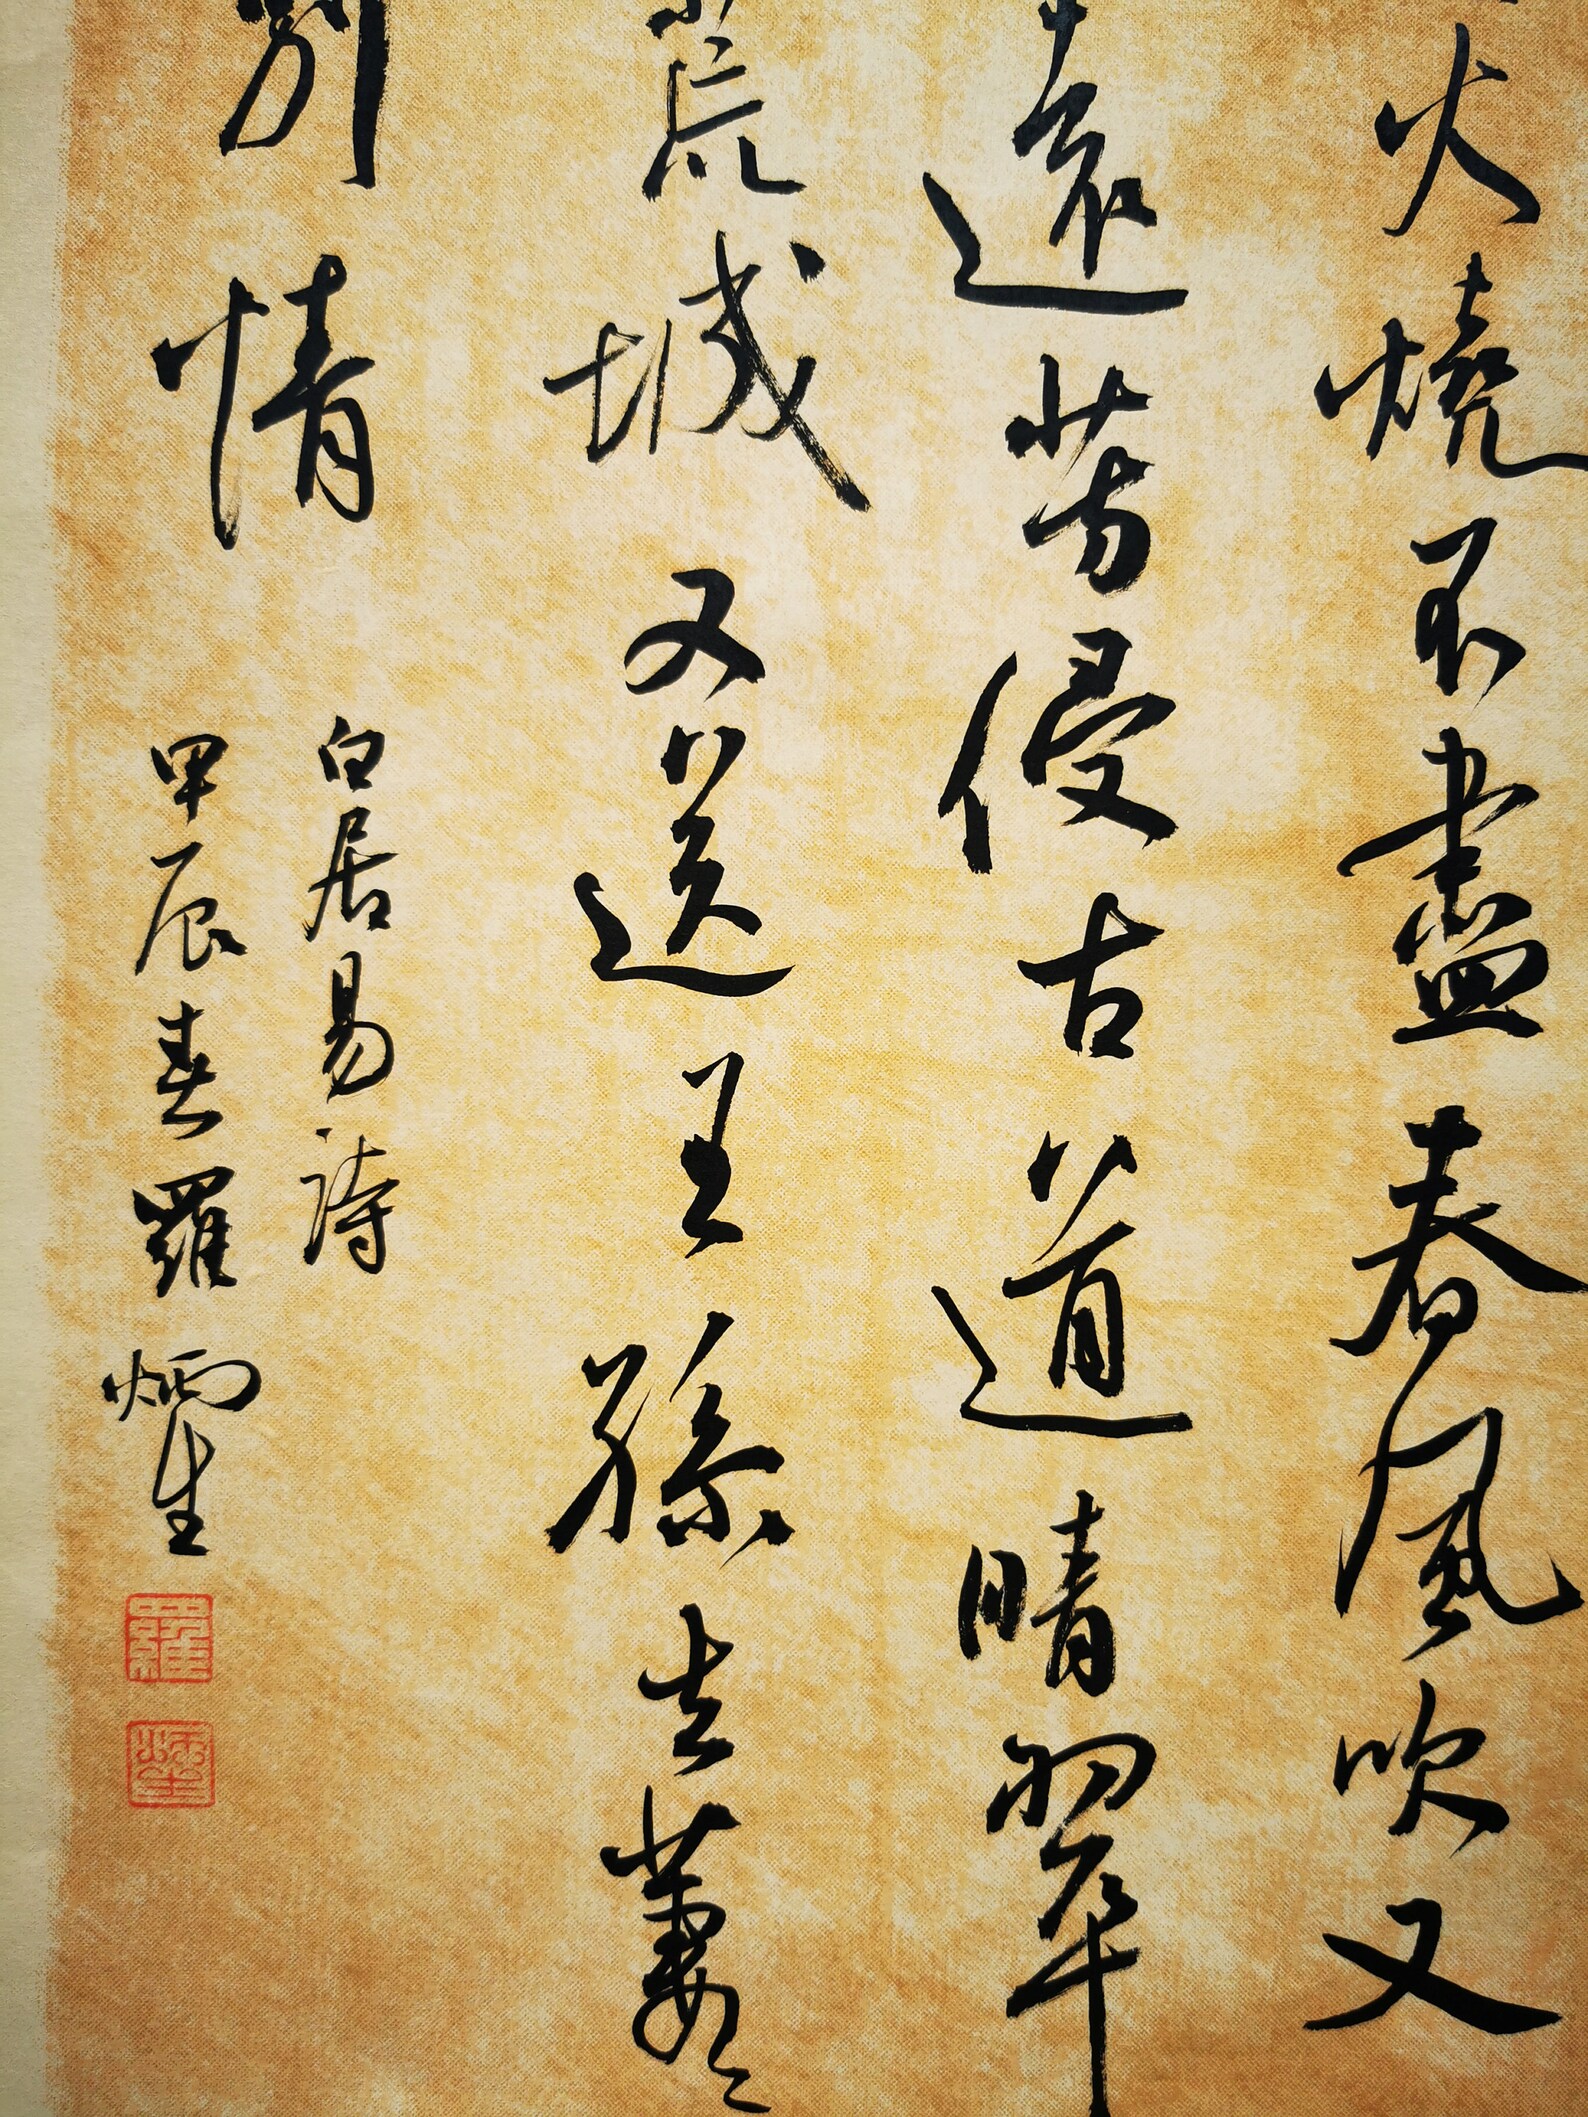 火燒不盡春風吹又
遠芳侵古道晴翠
荒城又送王孫去萋〻
別情
白居易詩
甲辰春羅炳生
羅
炳生